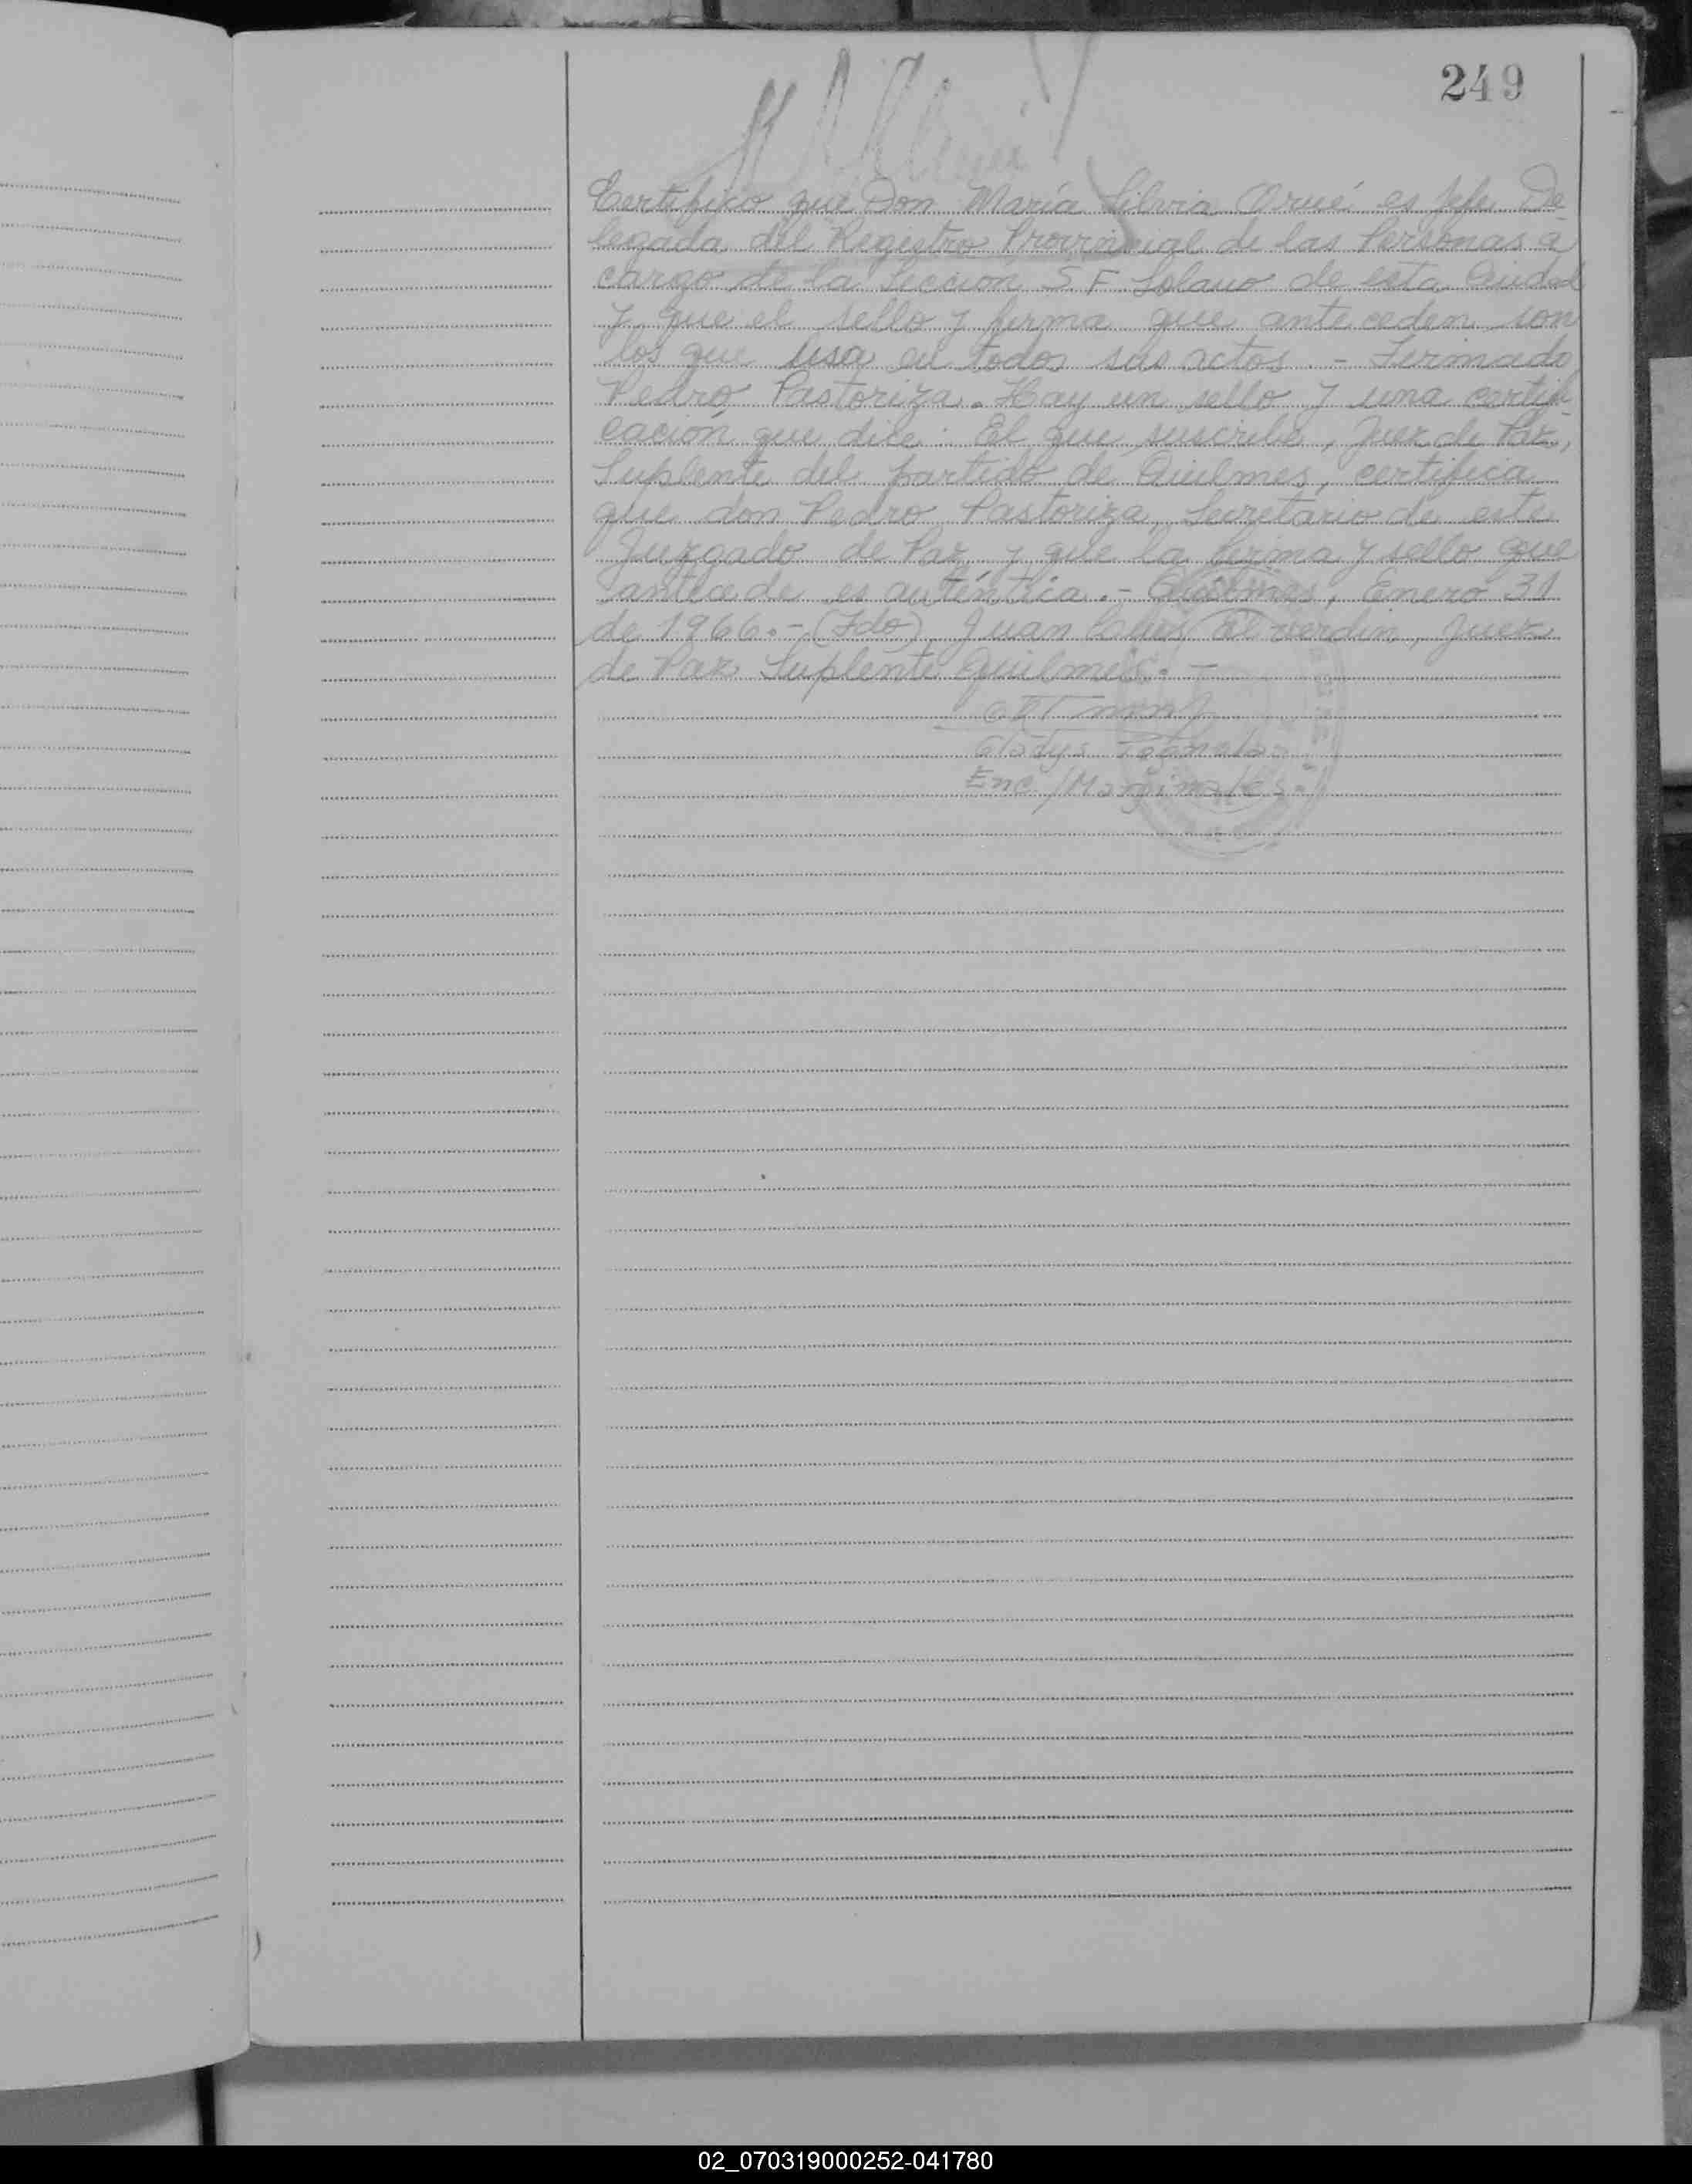 249
Certifico que Don María Silvia Orué es Jefe De-
legada del Registro Provincial de las Personas a
cargo de la Sección S F Solano de esta Ciudad
y que el sello y firma que anteceden son
los que usa en todos sus actos.- Firmado
Pedro Pastoriza. Hay un sello y una certifi-
cación que dice: El que suscribe, Juez de Paz,
Suplente del partido de Quilmes, certifica
que don Pedro Pastoriza, Secretario de este
Juzgado de Paz y que la firma y sello que
antecede es auténtica.- Quilmes, Enero 31
de 1966.- (Fdo) Juan Alverdin, Juez
de Paz Suplente Quilmes.-
Gladys
Enc/Marginales.
02_070319000252-041780